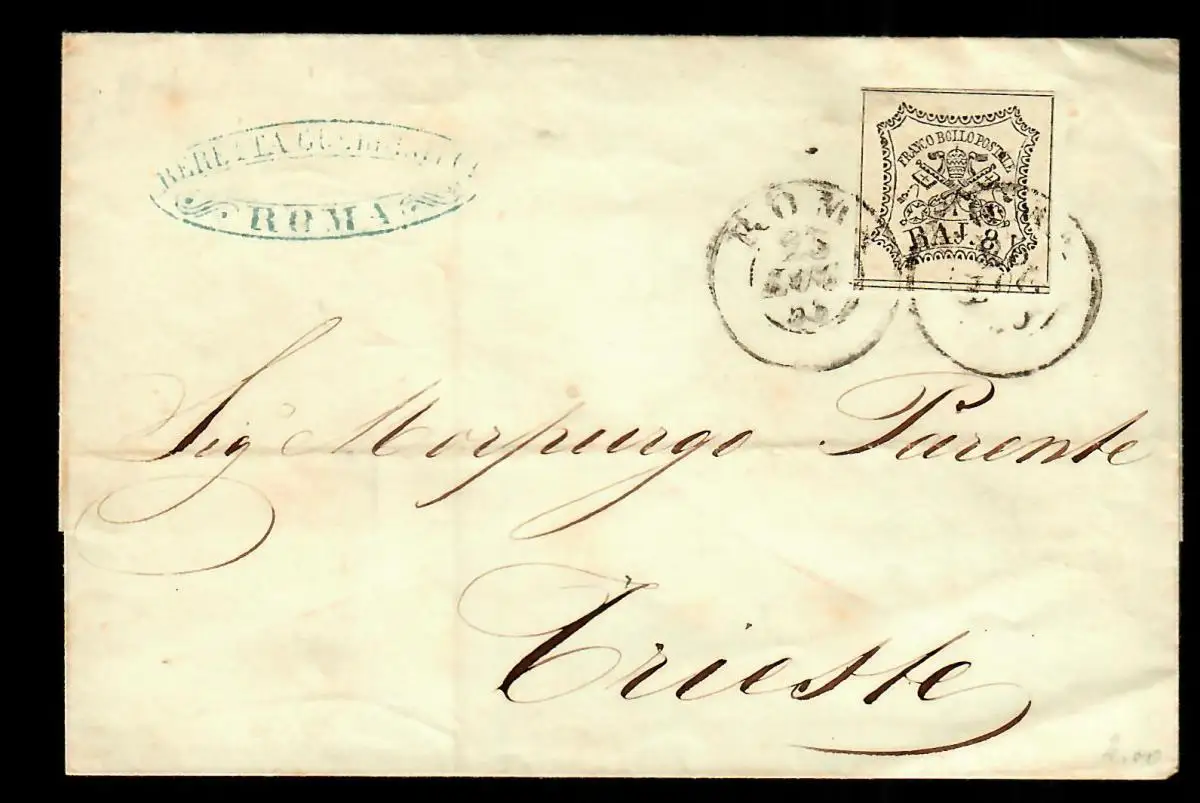 BERETTA
ROMA
FRANCO BOLLO POSTALE
BAJ. 8
ROM
23
LUG
Sig Morpurgo Parente
Trieste